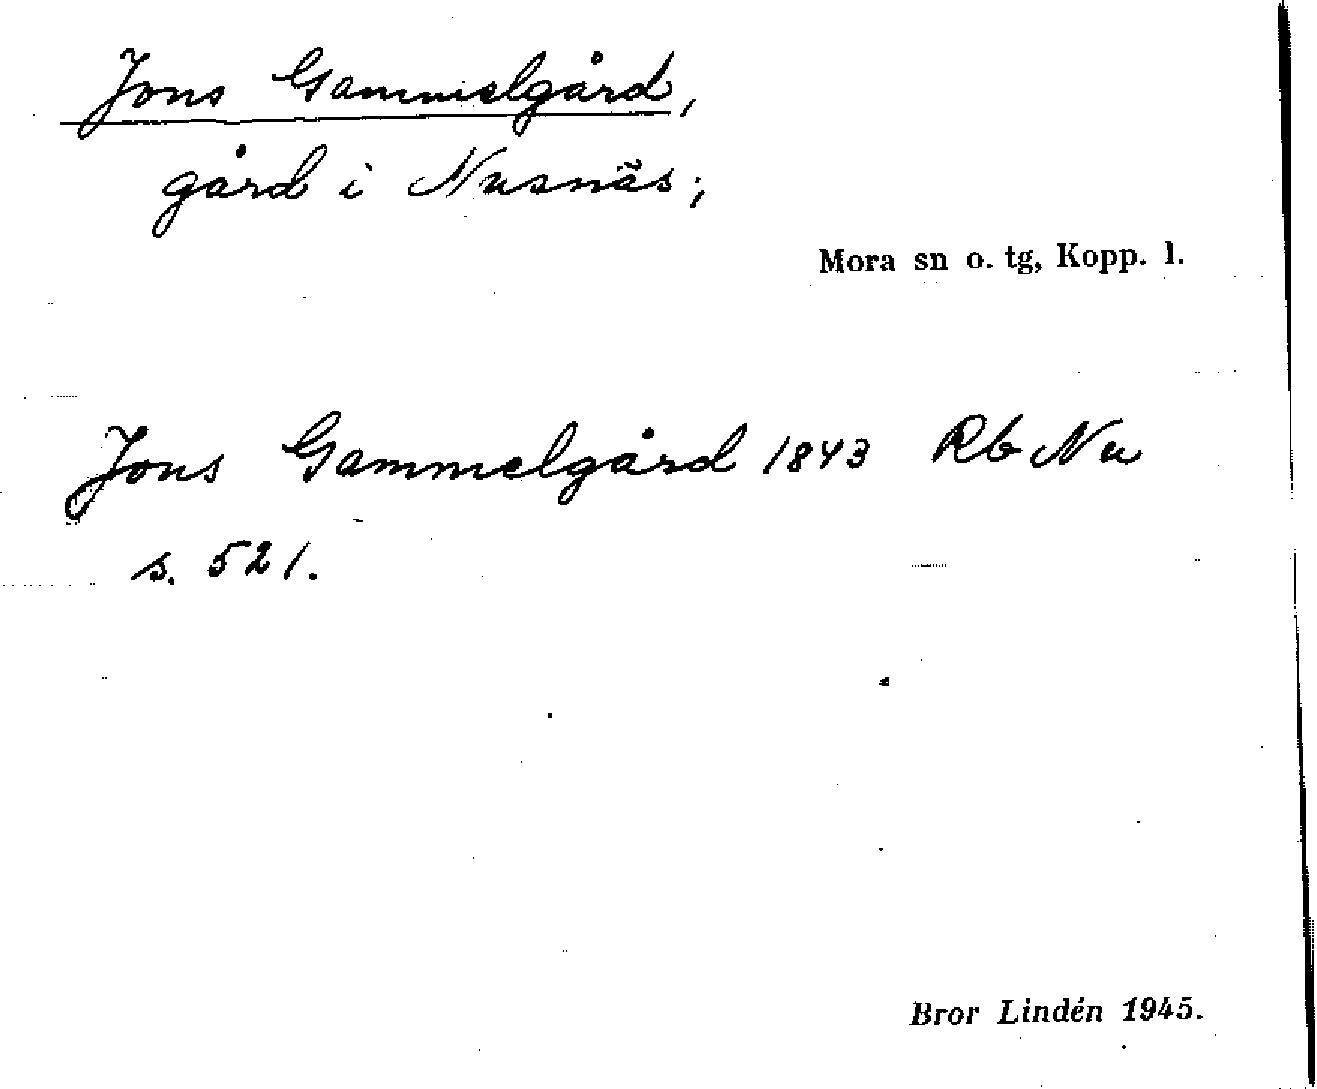 Jons Gammelgård,
gård i Nusnäs;
Mora sn o. tg, Kopp. l.
Jons Gammelgård 1843 Rb Nu
s. 521.
Bror Lindén 1945.